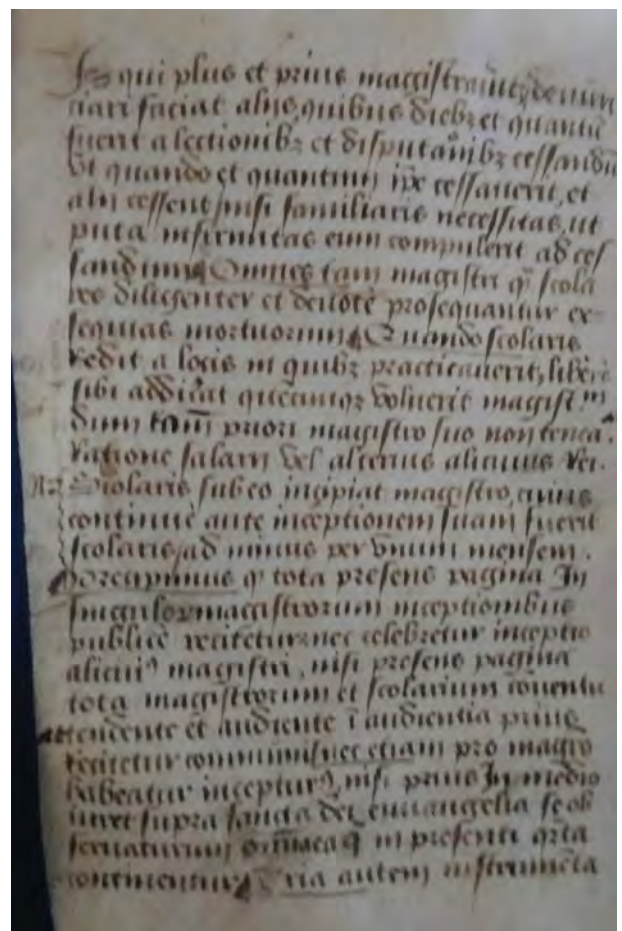 Is qui plus et prius magistrauit, denun
ciari faciat alijs, quibus dieb; et quantū
fuerit a lectionib; et disputaōnib; cessandū
Vt quando et quantum ip̄e cessauerit, et
alij cessent, nisi familiaris necessitas, ut
puta infirmitas eum compulerit ad ces
sandum. Omnes tam magistri q̄ scola
res diligenter et deuote prosequantur ex-
sequias mortuorum. Quando scolaris
redit a locis in quib; practicauerit, liberè
sibi addicat quecunq; voluerit magist.
dum tam̄ priori magistro suo non tenea.
ratione salarij vel alterius alicuius rei.
Scolaris sub eo incipiat magistro, cuius
continuè ante inceptionem suam fuerit
scolaris, ad minus per vnum mensem.
Precipimus q̄ tota presens pagina In
singulor magistrorum inceptionibus
publicè recitetur, nec celebretur inceptio
alicui⁹ magistri, nisi presens pagina
tota magistrorum et scolarium cōuentu
tendente et audiente ī audientia prius
recitetur communi, nec etiam pro magro
habeatur incepturꝰ, nisi prius In medio
iuret supra sancta dei euuangelia se ob
seruaturum in presenti
continentur. Tria autem instrumēta